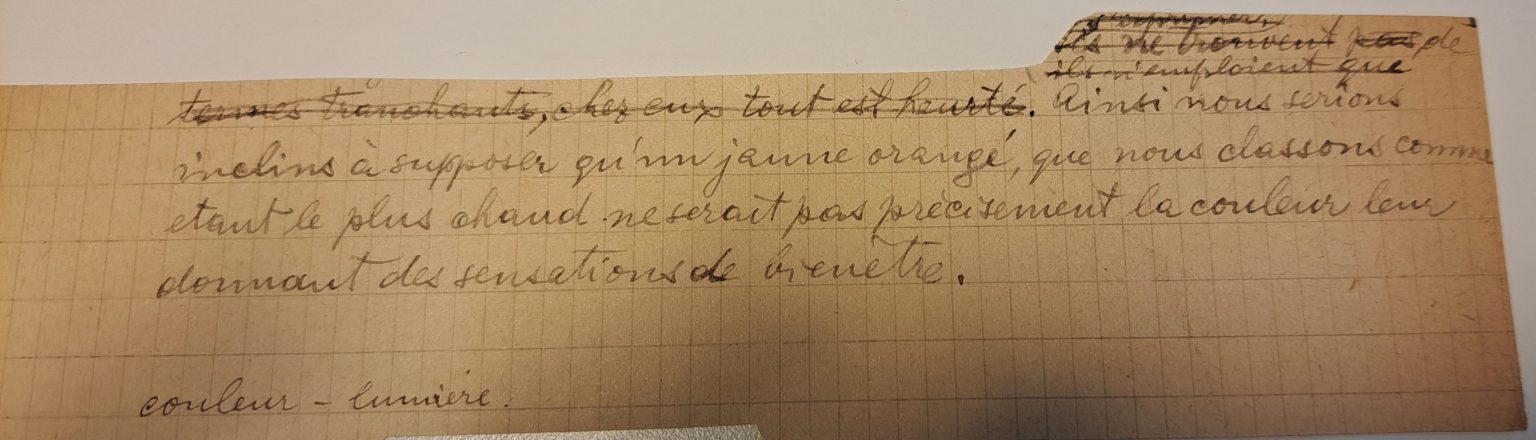 s'exprimer,
ils ne trouvent pas de
ils n'emploient que
termes tranchants, chez eux tout est heurté. Ainsi nous serions
inclins à supposer qu'un jaune orangé, que nous classons comme
etant le plus chaud ne serait pas précisement la couleur leur
donnant des sensations de bienêtre.
couleur – lumière.